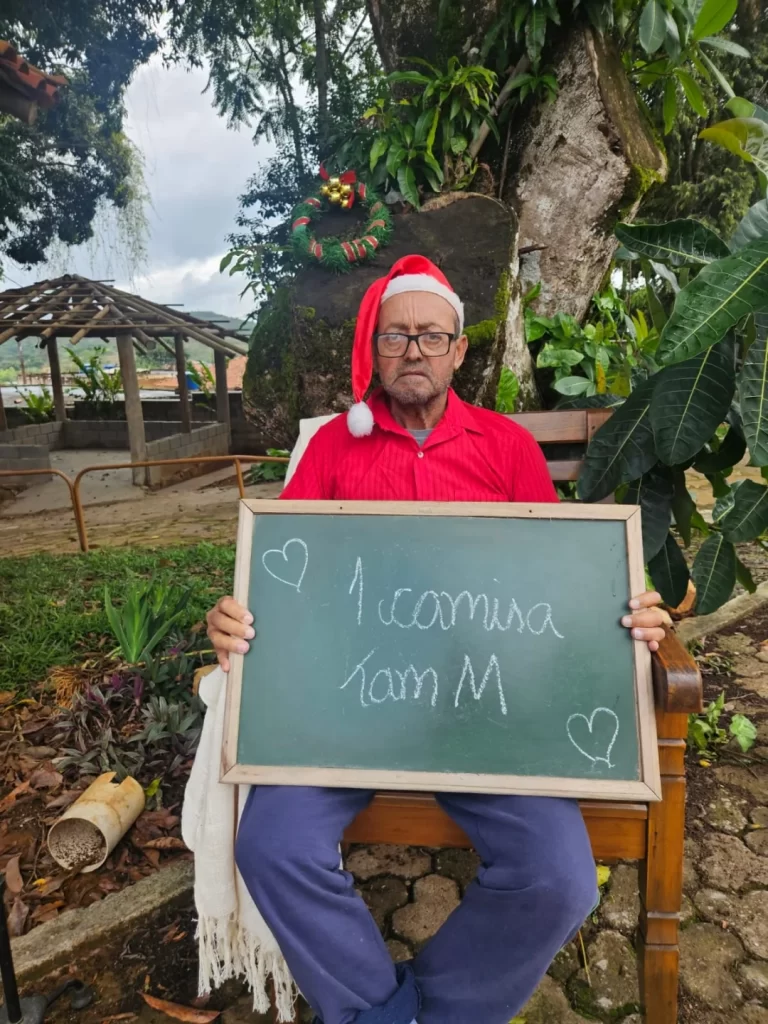 1 camisa
Tam M